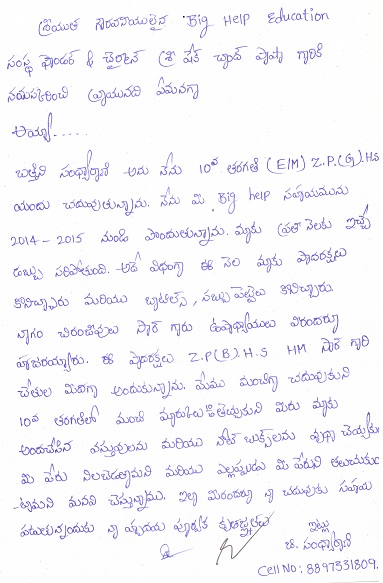 శ్రీయుత గౌరవనీయులైన Big Help Education
సంస్థ ఫౌండర్ & చైర్మాన్ శ్రీ షేక్ చాంద్ పాషా గారికి
నమస్కరించి వ్రాయునది ఏమనగా
అయ్యా.....
బత్తిని సంధ్యారాణి అను నేను 10వ తరగతి (E/M) Z.P.(G).H.S
యందు చదువుతున్నాను. నేను మీ Big help సహాయమును
2014 - 2015 నుండి పొందుతున్నాను. మాకు ప్రతీ నెలకు ఇచ్చే
డబ్బు సరిపోతుంది. అదే విధంగా ఈ నెల మాకు పాదరక్షలు
కొనిచ్చారు మరియు బ్యాటిల్స్, సబ్బు పెట్టెలు కొనిచ్చారు.
నాగం చిరంజీవులు సార్ గారు ఉపాధ్యాయులు వీరందరూ
హాజరయ్యారు. ఈ పాదరక్షలు Z.P(B).H.S HM సార్ గారి
చేతుల మీదగా అందుకున్నాను. మేము మంచిగా చదువుకుని
10వ తరగతిలో మంచి మార్కులు తెచ్చుకుని మీరు మాకు
అందచేసిన వస్తువులను మరియు నోట్ బుక్స్‌లను వృధా చెయ్యకుండా
మీ పేరు నిలబెడతామని మరియు ఎల్లప్పుడు మీ పేరుని తలుచుకుం
-టామని మనవి చేస్తున్నాము. ఇలా మీరందరూ నా చదువుకు సహాయ
పడుతున్నందుకు నా హృదయ పూర్వక కృతజ్ఞతలు
ఇట్లు
బ. సంధ్యారాణి
Cell No: 8897331809.